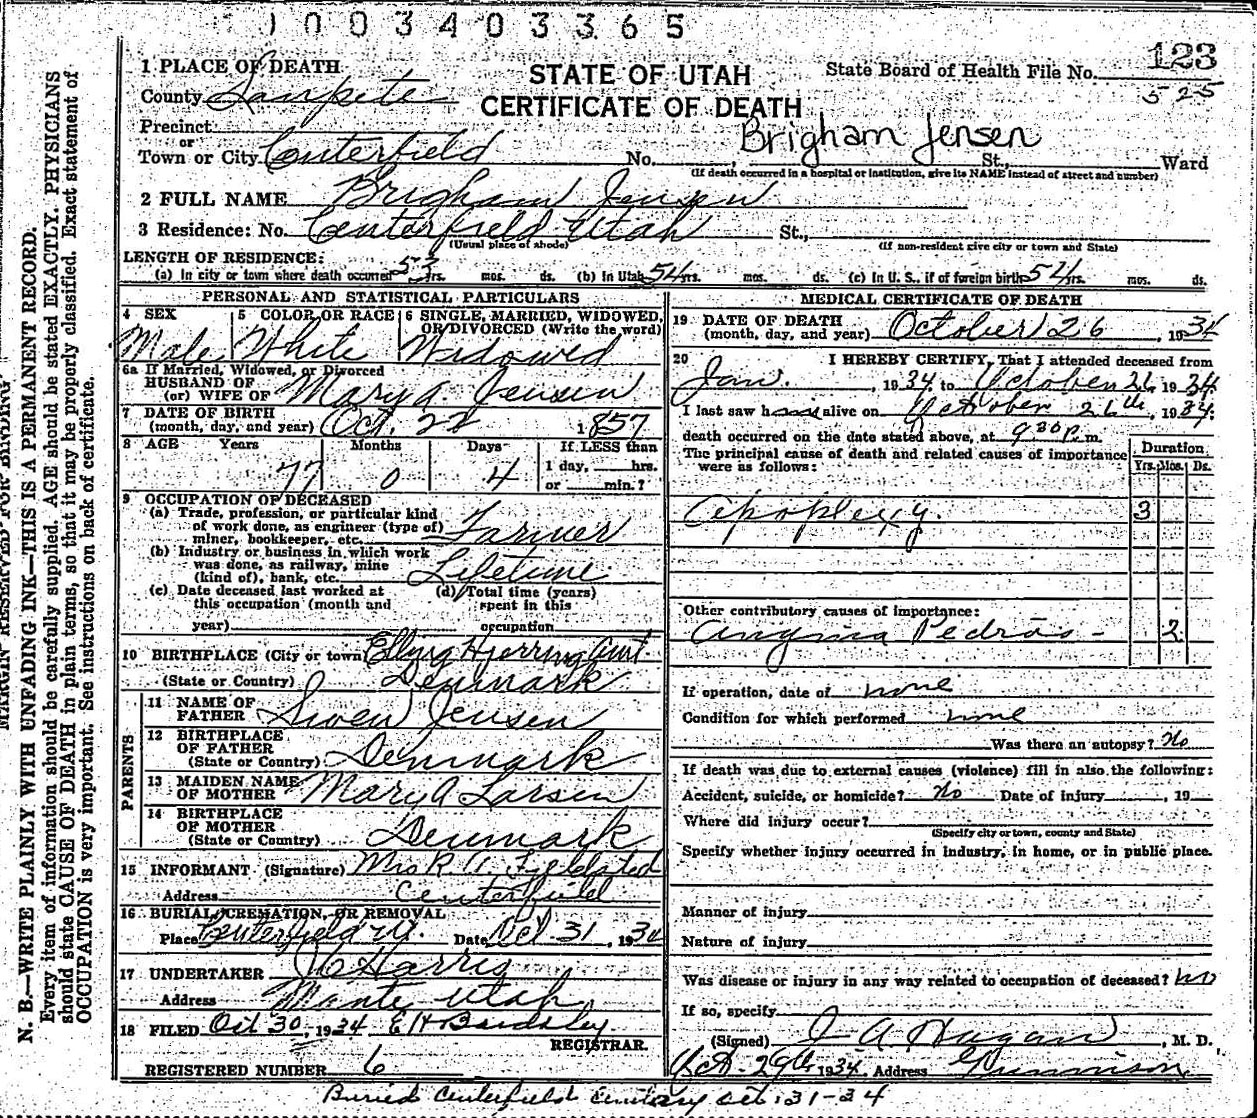 1003403365
123
5 25
1 PLACE OF DEATH
County Sanpete
Precinct
or
Town or City Centerfield
STATE OF UTAH
CERTIFICATE OF DEATH
State Board of Health File No.
Brigham Jensen
No. , St., Ward
(If death occurred in a hospital or institution, give its NAME instead of street and number)
2 FULL NAME Brigham Jensen
3 Residence: No. Centerfield Utah St.,
(Usual place of abode) (If non-resident give city or town and State)
LENGTH OF RESIDENCE:
(a) In city or town where death occurred 53 yrs. mos. ds. (b) In Utah 54 yrs. mos. ds. (c) In U. S., if of foreign birth 54 yrs. mos. ds.
PERSONAL AND STATISTICAL PARTICULARS
4 SEX Male
5 COLOR OR RACE White
6 SINGLE, MARRIED, WIDOWED, OR DIVORCED (Write the word) Widowed
6a If Married, Widowed, or Divorced
HUSBAND OF
(or) WIFE OF Mary A. Jensen
7 DATE OF BIRTH
(month, day, and year) Oct. 22 1857
8 AGE Years Months Days If LESS than
77 0 4 1 day, hrs.
or min.?
9 OCCUPATION OF DECEASED
(a) Trade, profession, or particular kind
of work done, as engineer (type of)
miner, bookkeeper, etc. Farmer
(b) Industry or business in which work
was done, as railway, mine
(kind of), bank, etc. Lifetime
(c) Date deceased last worked at
this occupation (month and
year)
(d) Total time (years)
spent in this
occupation
10 BIRTHPLACE (City or town) Hjerring Amt.
(State or Country) Denmark
PARENTS
11 NAME OF
FATHER Swen Jensen
12 BIRTHPLACE
OF FATHER
(State or Country) Denmark
13 MAIDEN NAME
OF MOTHER Mary A Larsen
14 BIRTHPLACE
OF MOTHER
(State or Country) Denmark
15 INFORMANT (Signature) Mrs R Fjeldsted
Address Centerfield
16 BURIAL, CREMATION, OR REMOVAL
Place Centerfield Ut. Date Oct 31, 1934
17 UNDERTAKER Harris
Address Manti Utah
18 FILED Oct 30, 1934 E H Bardsley
REGISTRAR.
REGISTERED NUMBER 6
MEDICAL CERTIFICATE OF DEATH
19 DATE OF DEATH
(month, day, and year) October 26, 1934
20 I HEREBY CERTIFY, That I attended deceased from
Jan. , 1934, to October 26 1934
I last saw h alive on October 26th, 1934.
death occurred on the date stated above, at 930 p.m.
The principal cause of death and related causes of importance
were as follows:
Duration
Yrs. Mos. Ds.
Apoplexy. 3
Other contributory causes of importance:
Angina Pedras - 2
If operation, date of none
Condition for which performed none
Was there an autopsy? No
If death was due to external causes (violence) fill in also the following:
Accident, suicide, or homicide? no Date of injury , 19
Where did injury occur?
(Specify city or town, county and State)
Specify whether injury occurred in Industry, in home, or in public place.
Manner of injury
Nature of injury
Was disease or injury in any way related to occupation of deceased? no
If so, specify
(Signed) J A Hagan, M. D.
Oct - 29th 1934. Address Gunnison
Buried Centerfield Cemitary Oct 31-34
MARGIN RESERVED FOR BINDING
N. B.—WRITE PLAINLY WITH UNFADING INK—THIS IS A PERMANENT RECORD.
Every item of information should be carefully supplied. AGE should be stated EXACTLY. PHYSICIANS
should state CAUSE OF DEATH in plain terms, so that it may be properly classified. Exact statement of
OCCUPATION is very important. See instructions on back of certificate.